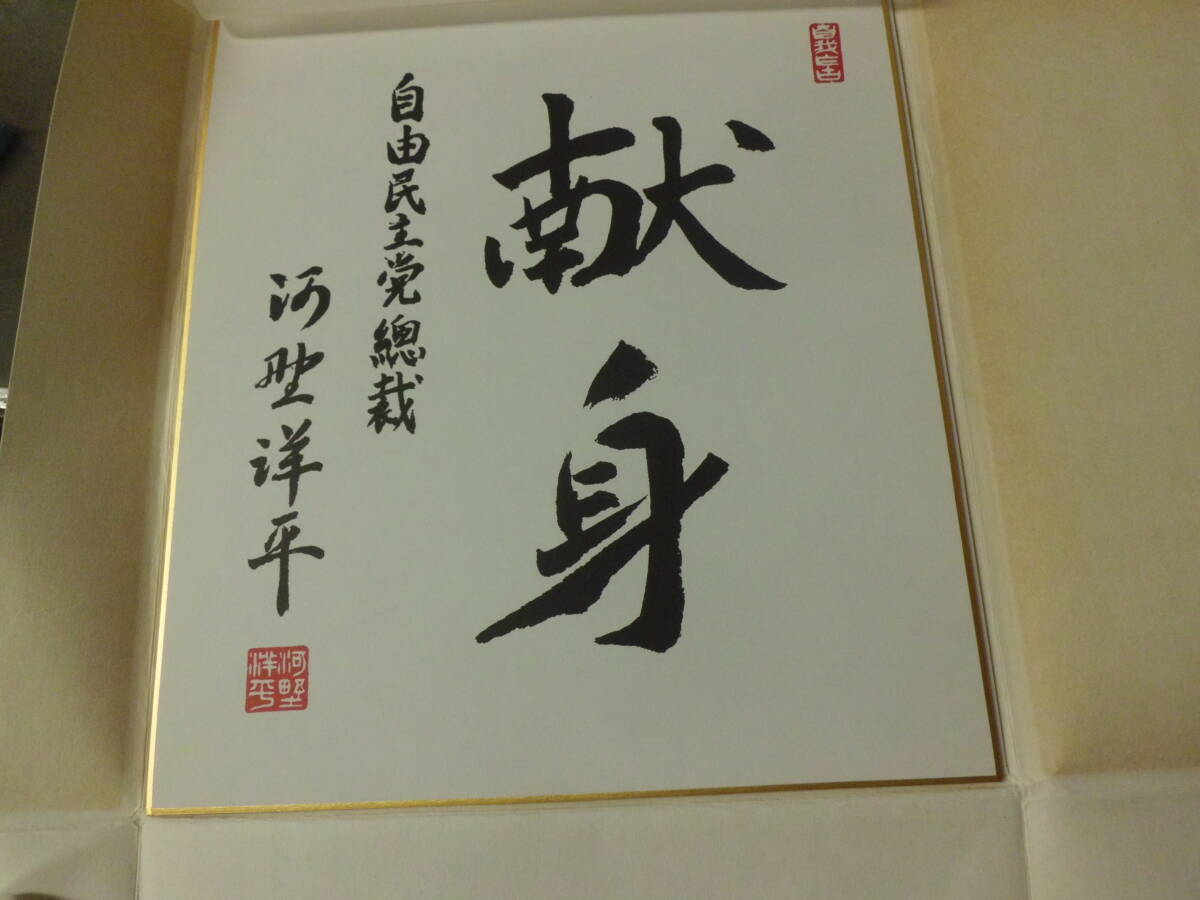 献身
自由民主党總裁
河野洋平
河野
洋平